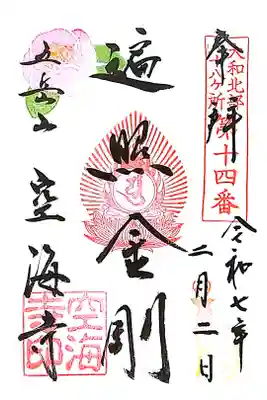 奉拝
大和北部八十八ヶ所第十四番
令和七年
二月二日
遍照金剛
五岳山 空海寺
空海寺印